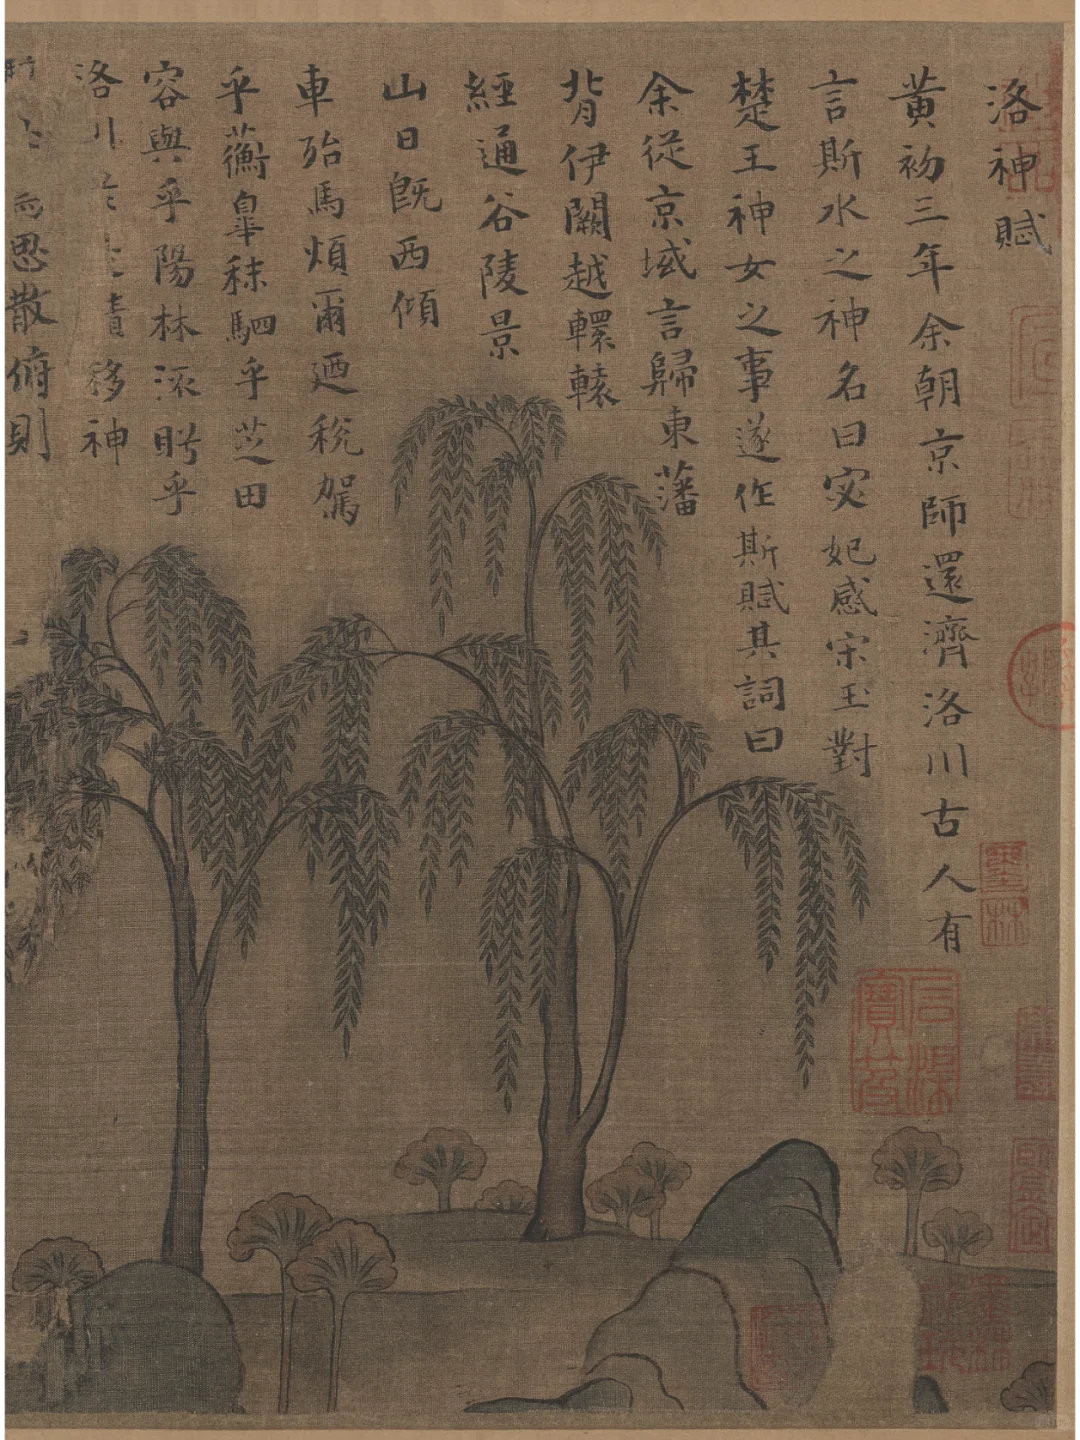 洛神賦
黃初三年余朝京師還濟洛川古人有
言斯水之神名曰宓妃感宋玉對
楚王神女之事遂作斯賦其詞曰
余從京域言歸東藩
背伊闕越轘轅
經通谷陵景
山日既西傾
車殆馬煩爾迺稅駕
乎蘅皋秣駟乎芝田
容與乎陽林流眄乎
洛川於是精移神
思散俯則
墨林